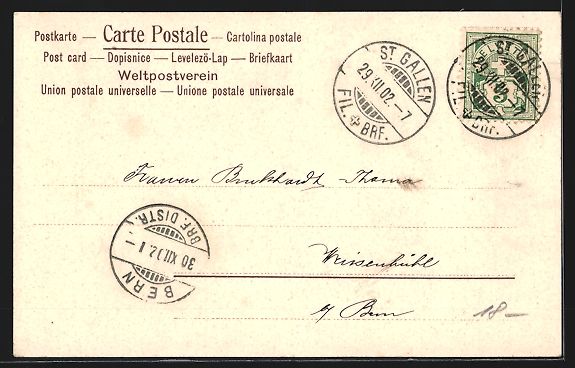 Postkarte — Carte Postale — Cartolina postale
Post card — Dopisnice — Levelező-Lap — Briefkaart
Weltpostverein
Union postale universelle — Unione postale universale
ST GALLEN
29.XII.02.–7
FIL. BRF.
ST GALLEN
29.XII.02.
FIL. BRF.
Burkhardt-Thoma
BRF. DISTR.
30 XII.02
BERN
Weissenbühl
b/ Bern
18–